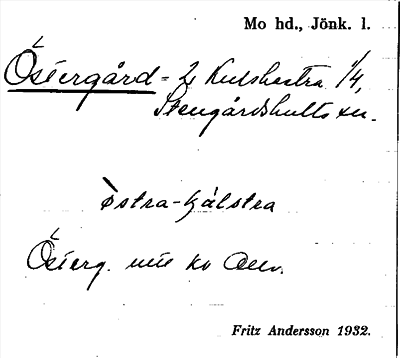 Mo hd., Jönk. l.
Östergård = 2 Kulshestra 1/4,
Stengårdshults sn.
östra-kålstra
Österg.
Fritz Andersson 1932.